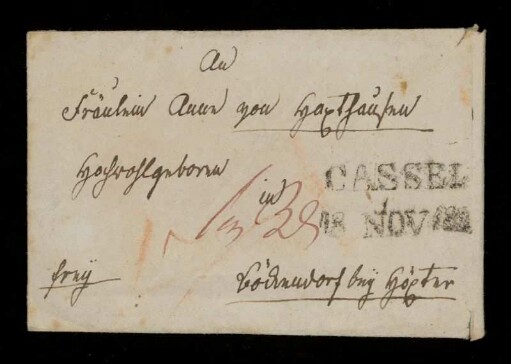 An
Fräulein Anne von Haxthausen
Hochwohlgeboren
in
CASSEL
18 NOV
frey
Bökendorf bey Höxter